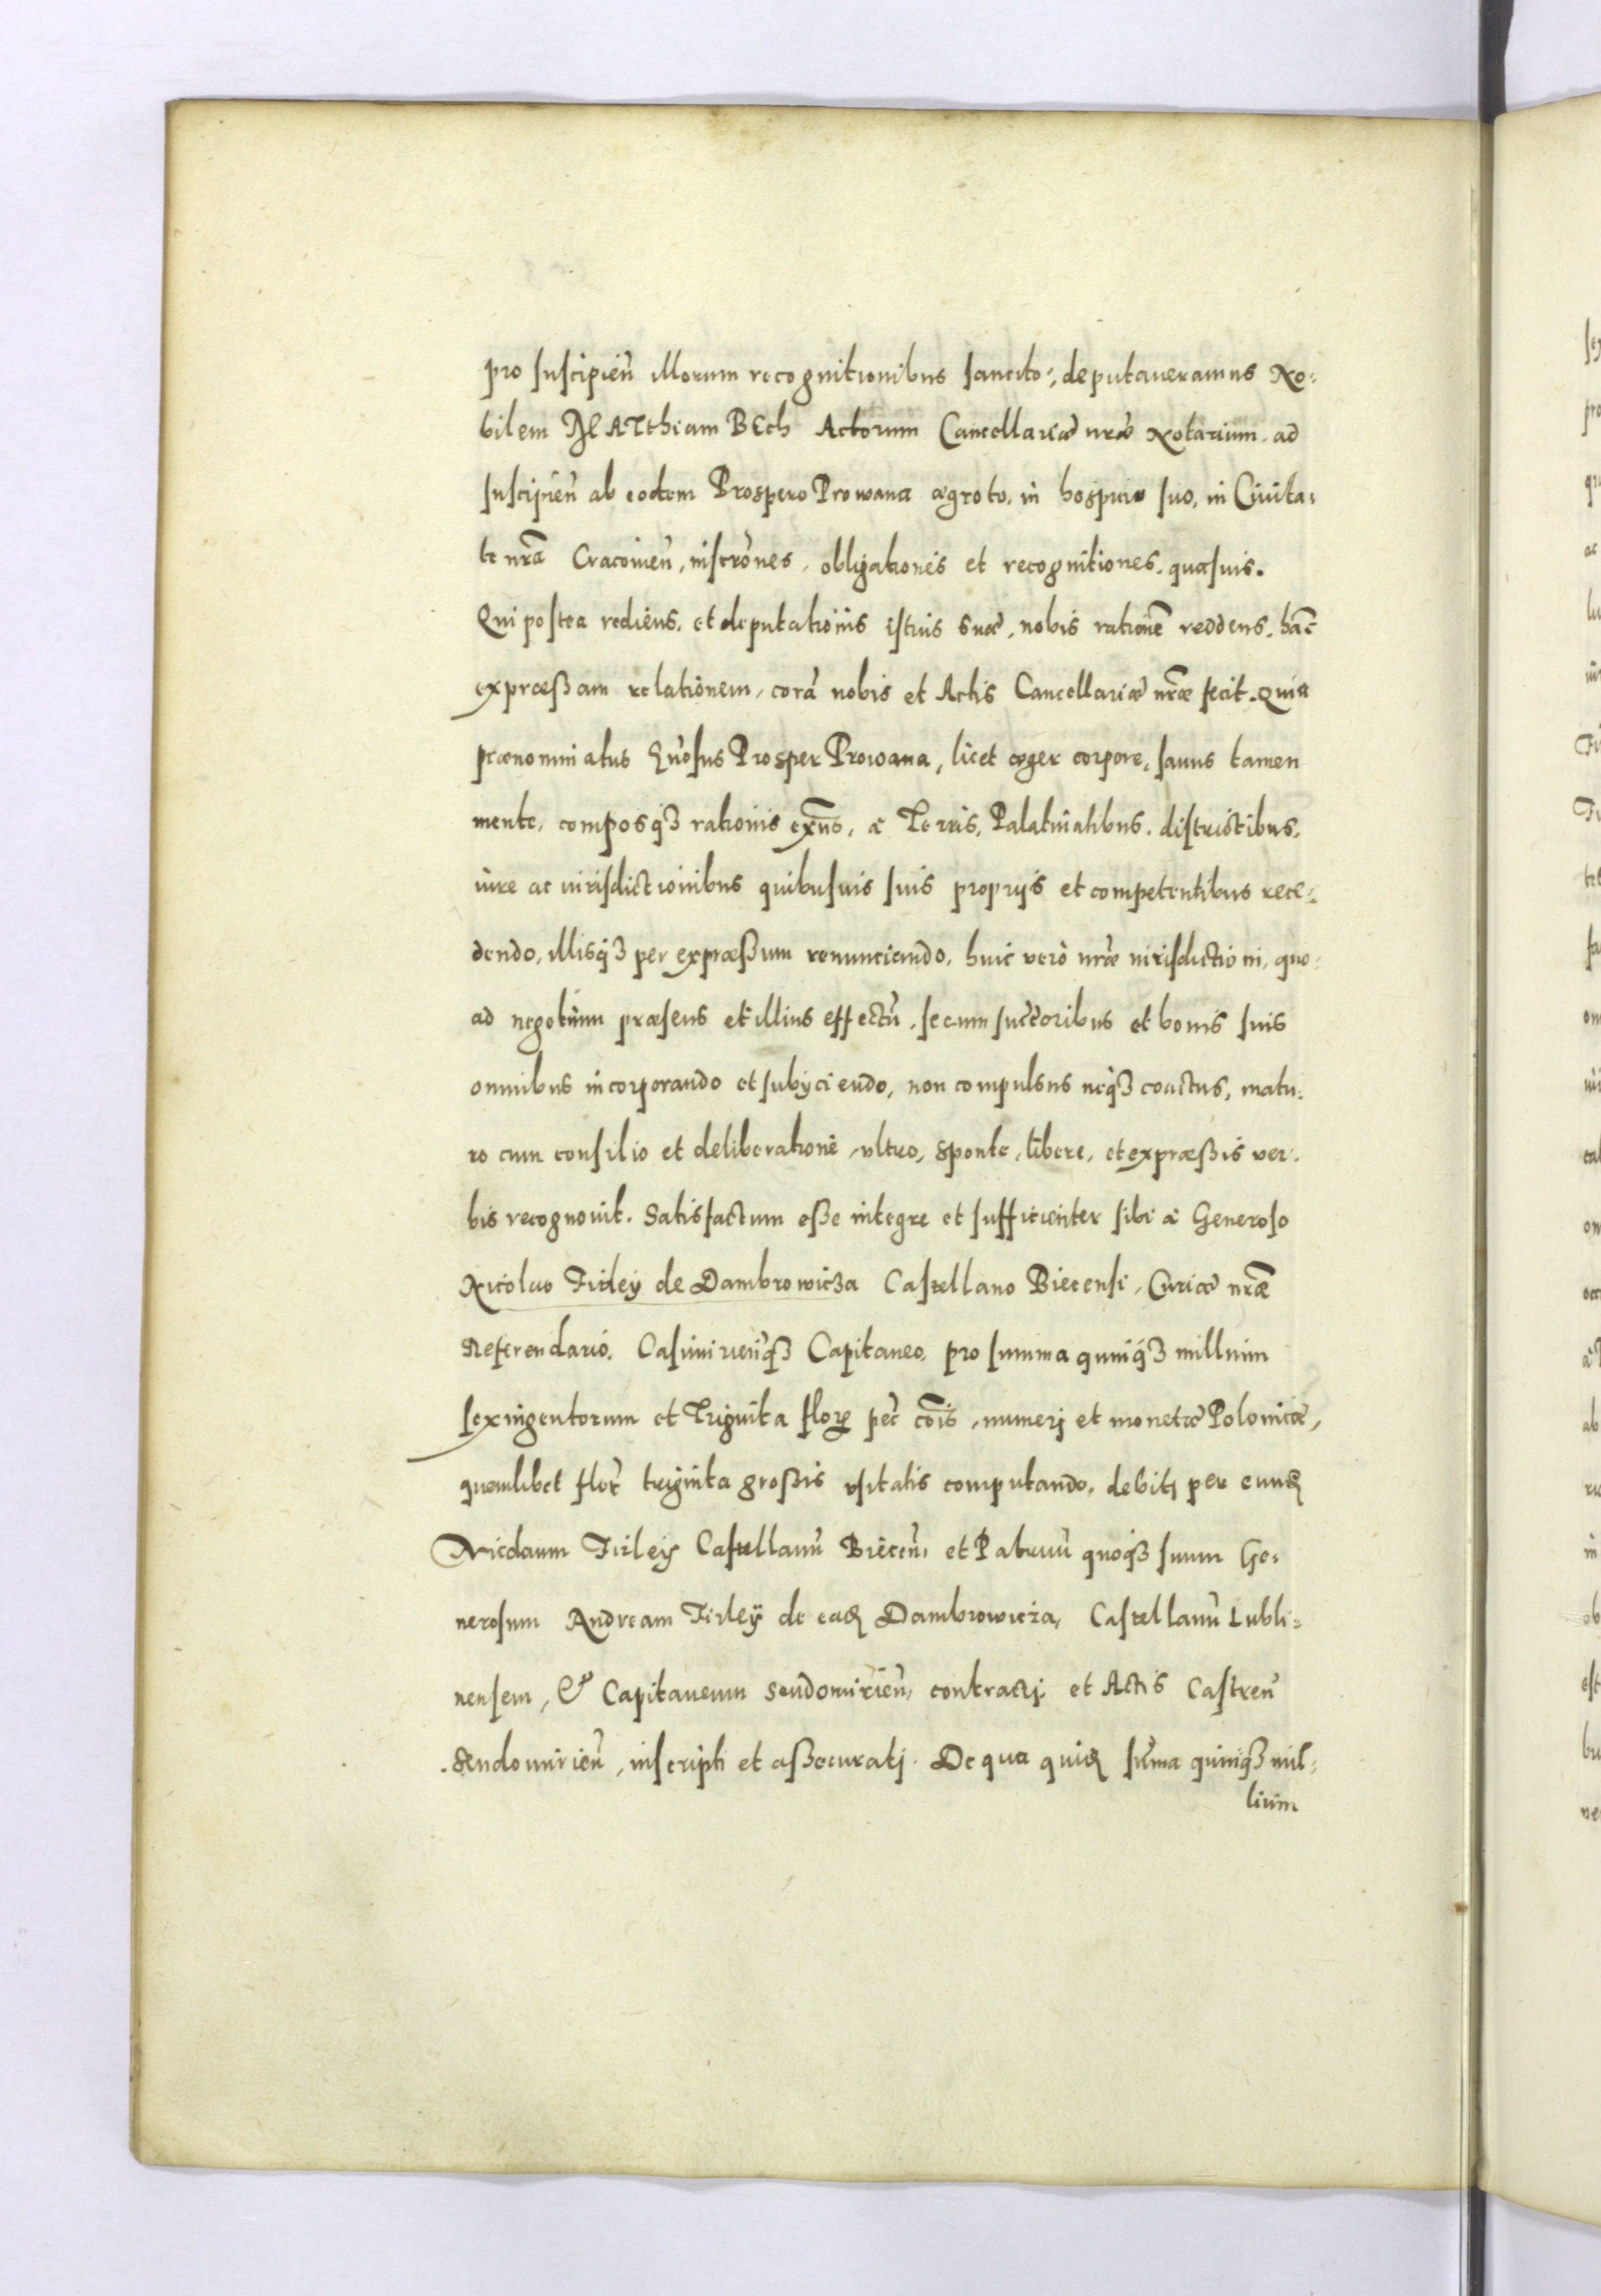 pro suscipień illorum recognitionibus sancito, deputaueramus No:
bilem MATthiam BEch Actorum Cancellariæ nræ Notarium. ad
suscipień ab eodem Prospero Prowana ægroto, in hospitio suo, in Ciuita:
te nr̃a Cracouień, inscrõnes, obligationes et recognitiones quasuis.
Qui postea rediens, et deputationis istius suæ, nobis rationẽ reddens, hãc
expræßam relationem, corã nobis et Actis Cancellariæ nr̃æ fecit. Quia
prænominatus Gnosus Prosper Prowana, licet æger corpore, sanus tamen
mente, composq3 rationis exñs, à Terris, Palatinatibus, districtibus,
iure ac iurisdictionibus quibusuis suis proprijs et competentibus rece:
dendo, illisq3 per expræßum renunciando, huic verò nræ iurisdictioni, quo:
ad negotium præsens et illius effectũ, se cum succeoribus et bonis suis
omnibus incorporando et subijciendo, non compulsus neq3 coactus, matu:
ro cum consilio et deliberatione, vltro, sponte, libere, et expræßis ver:
bis recognouit. Satisfactum eße integre et sufficienter sibi à Generoso
Nicolao Firley de Dambrowicza Castellano Biecensi, Curiæ nr̃æ
Referendario, Casimirieñq3 Capitaneo, pro summa quinq3 millium
sexingentorum et Triginta flor pec̃ cõis, numerj et monetæ Polonicæ,
quemlibet flor̃ triginta großis vsitatis computando, debitj per eund
Nicolaum Firley Castellanũ Biecen̂, et Patruũ quoq3 suum Ge:
nerosum Andream Firleÿ de ead Dambrowicza, Castellanũ Lubli:
nensem, & Capitaneum Sendomirień, contractj, et Actis Castreñ
Sendomirień, inscripti et aßecuratj. De qua quid sum̃a quinq3 mil:
lium